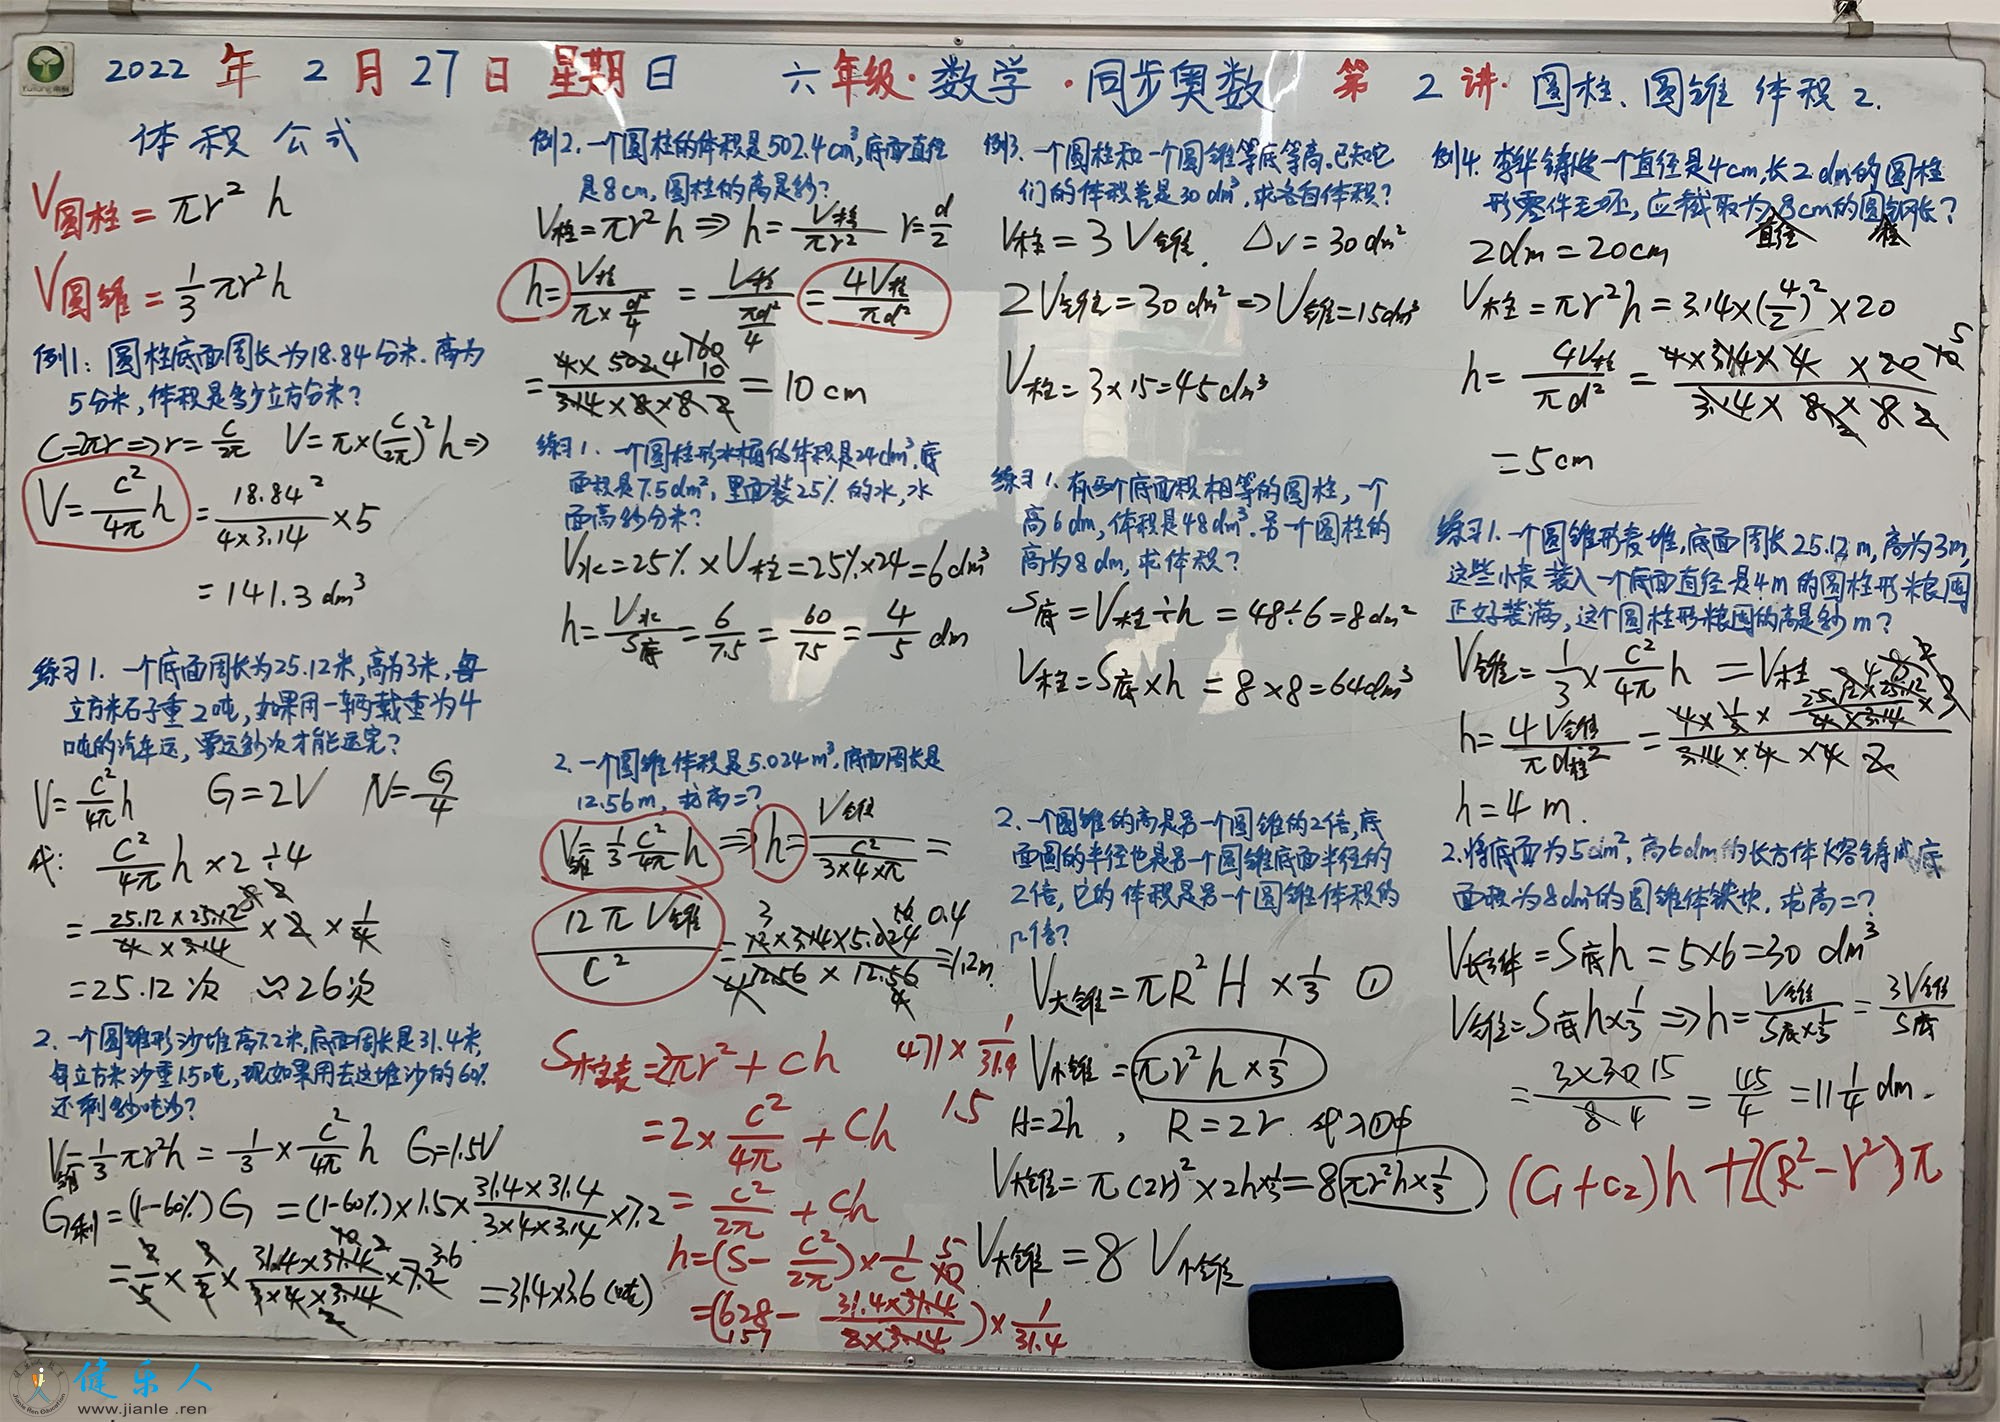 2022 年 2 月 27 日 星期日 六年级·数学·同步奥数 第 2 讲·圆柱、圆锥 体积 2.
体积 公式
V圆柱 = πr² h
V圆锥 = 1/3 πr²h
例1: 圆柱底面周长为18.84分米. 高为
5分米, 体积是多少立方分米?
C=2πr ⇒ r = C/2π V = π×(C/2π)² h ⇒
V = C²/4π h = 18.84²/(4×3.14) ×5
= 141.3 dm³
练习1. 一个底面周长为25.12米, 高为3米, 每
立方米石子重2吨, 如果用一辆载重为4
吨的汽车运, 要运多少次才能运完?
V = C²/4π h G = 2V N = G/4
C²/4π h × 2 ÷ 4
= 25.12次 ≈ 26次
2. 一个圆锥形沙堆高7.2米, 底面周长是31.4米,
每立方米沙重1.5吨, 现如果用去这堆沙的60%
还剩多少吨沙?
V锥 = 1/3 πr²h = 1/3 × C²/4π h G = 1.5V
G剩 = (1-60%) G = (1-60%)×1.5× (31.4×31.4)/(3×4×3.14) ×7.2
= 31.4×3.6 (吨)
例2. 一个圆柱的体积是502.4cm³, 底面直径
是8cm, 圆柱的高是多少?
V柱 = πr² h ⇒ h = V柱/πr² r = d/2
h = V柱/(π×d²/4) = V柱/(πd²/4) = 4V柱/πd²
= (4×502.4)/(3.14×8×8) = 10 cm
练习1. 一个圆柱形水桶的体积是24dm³, 底
面积是7.5dm², 里面装25%的水, 水
面高多少分米?
V水 = 25% × V柱 = 25%×24 = 6dm³
h = V水/S底 = 6/7.5 = 60/75 = 4/5 dm
2. 一个圆锥体积是5.024m³, 底面周长是
12.56m, 求高=?
V锥 = 1/3 C²/4π h ⇒ h = V锥/(C²/(3×4×π)) =
12πV锥/C² = (12×3.14×5.024)/(12.56×12.56) = 1.2m
S柱表 = 2πr² + Ch
= 2× C²/4π + Ch
= C²/2π + Ch
h = (S - C²/2π) × 1/C
= (628 - (31.4×31.4)/(2×3.14)) × 1/31.4
471 × 1/31.4
1.5
例3. 一个圆柱和一个圆锥等底等高. 已知它
们的体积差是30dm³, 求各自体积?
V柱 = 3V锥. ΔV = 30dm²
2V锥 = 30dm² ⇒ V锥 = 15dm³
V柱 = 3×15 = 45dm³
练习1. 有两个底面积相等的圆柱, 一个
高6dm, 体积是48dm³. 另一个圆柱的
高为8dm, 求体积?
S底 = V柱÷h = 48÷6 = 8dm²
V柱 = S底×h = 8×8 = 64dm³
2. 一个圆锥的高是另一个圆锥的2倍, 底
面圆的半径也是另一个圆锥底面半径的
2倍, 它的体积是另一个圆锥体积的
几倍?
V大锥 = πR² H × 1/3 ①
V小锥 = πr² h × 1/3
H=2h, R=2r 代入①中
V大锥 = π(2r)²×2h×1/3 = 8 πr²h×1/3
V大锥 = 8 V小锥
例4. 李华铸造一个直径是4cm, 长2dm的圆柱
形零件毛坯, 应截取直径为8cm的圆钢长?
2dm = 20cm
V柱 = πr²h = 3.14×(4/2)²×20
h = 4V柱/πd² = (4×3.14×4×20)/(3.14×8×8)
= 5cm
练习1. 一个圆锥形麦堆, 底面周长25.12m, 高为3m,
这些小麦装入一个底面直径是4m的圆柱形粮囤
正好装满, 这个圆柱形粮囤的高是多少m?
V锥 = 1/3 × C²/4π h = V柱
h = 4V锥/πd柱²
h = 4 m.
2. 将底面为5dm², 高6dm的长方体熔铸成底
面积为8dm²的圆锥体铁块. 求高=?
V长方体 = S底h = 5×6 = 30 dm³
V锥 = S底h×1/3 ⇒ h = V锥/(S底×1/3) = 3V锥/S底
= (3×30)/8 = 45/4 = 11 1/4 dm.
(C1+C2)h + 2(R²-r²)π
健乐人
www.jianle.ren